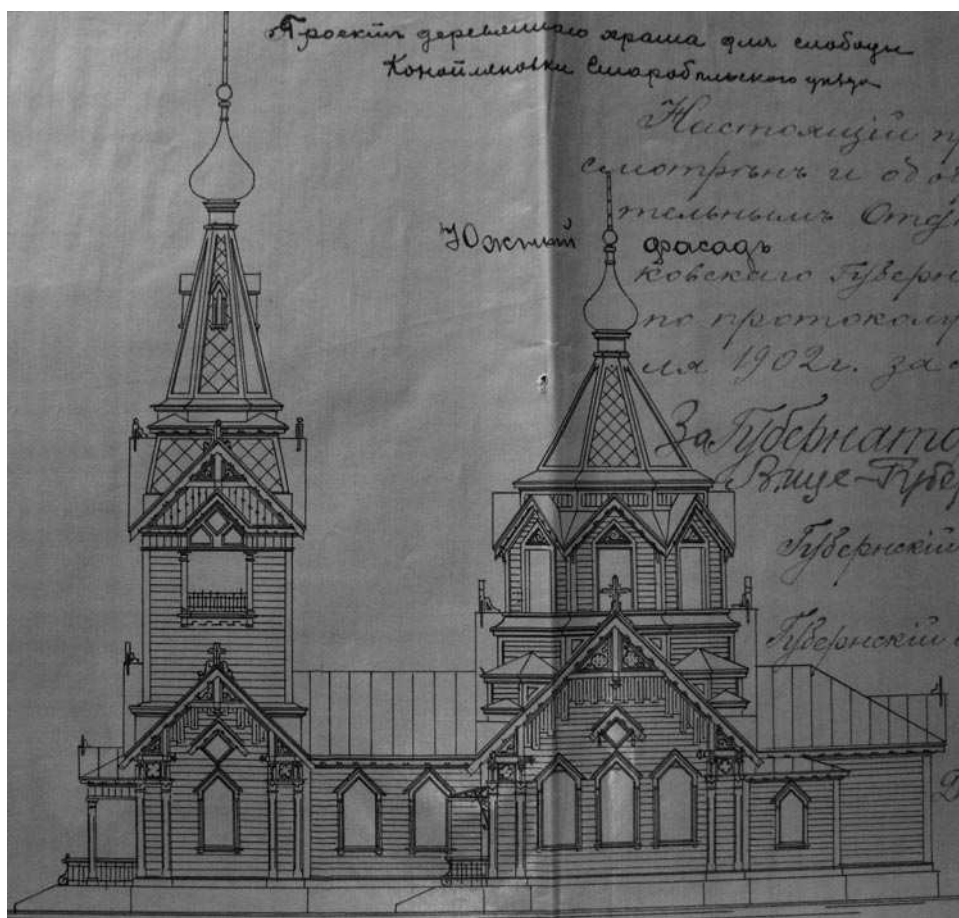 Проектъ деревяннаго храма для слободы
Конопляновки Старобѣльскаго уѣзда
Настоящій
смотрѣнъ и
тельнымъ
Южный фасадъ
ковскаго Губерн
по протоколу
ля 1902 г. за
За Губернато
Вице-Губер
Губернскій
Губернскій